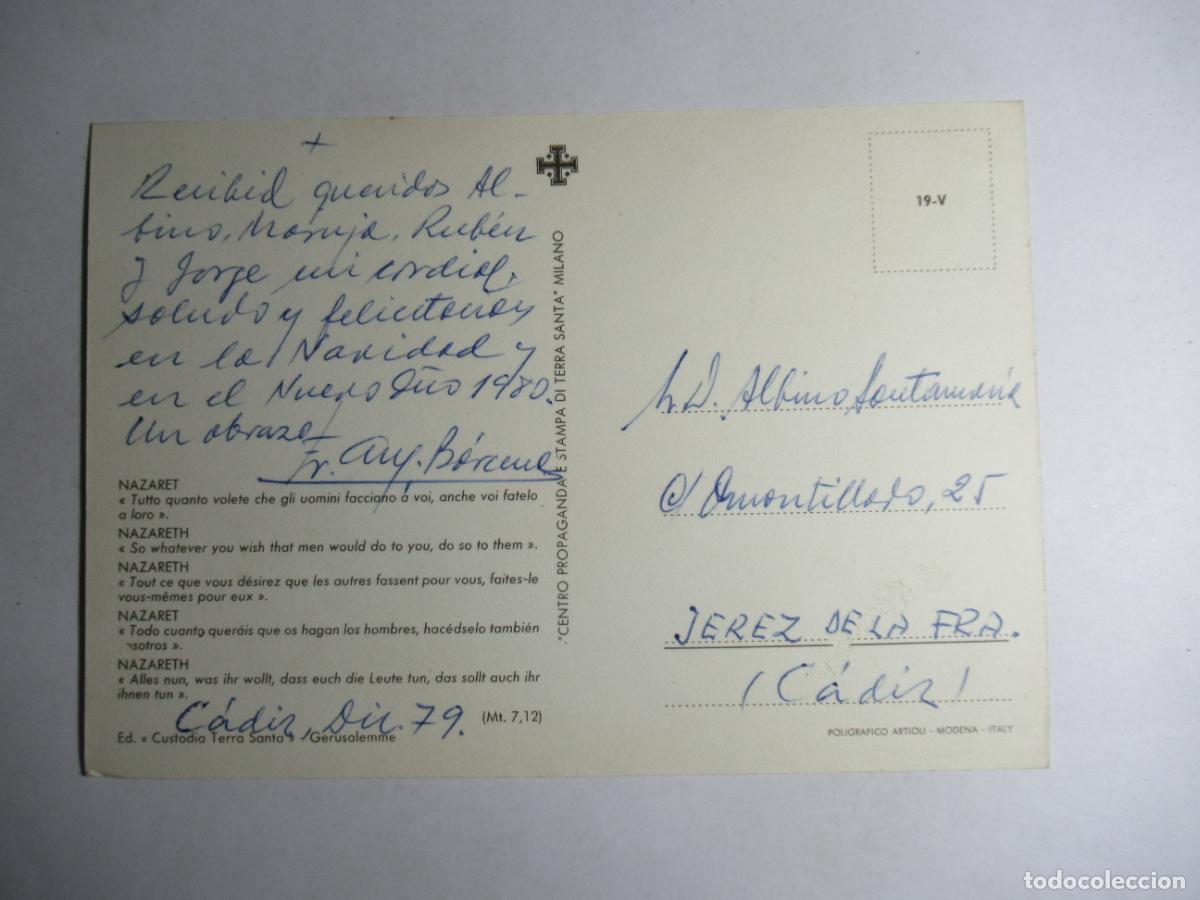 +
Recibid queridos Al-
bino, Maruja, Rubén
y Jorge mi cordial
saludo y felicitación
en la Navidad y
en el Nuevo Año 1980.
Un abrazo
Fr. Ang. Bárcena
NAZARET
« Tutto quanto volete che gli uomini facciano a voi, anche voi fatelo
a loro ».
NAZARETH
« So whatever you wish that men would do to you, do so to them ».
NAZARETH
« Tout ce que vous désirez que les autres fassent pour vous, faites-le
vous-mêmes pour eux ».
NAZARET
« Todo cuanto queráis que os hagan los hombres, hacédselo también
osotros ».
NAZARETH
« Alles nun, was ihr wollt, dass euch die Leute tun, das sollt auch ihr
ihnen tun ».
(Mt. 7,12)
Cádiz, Dic. 79.
Ed. « Custodia Terra Santa » - Gerusalemme
"CENTRO PROPAGANDA E STAMPA DI TERRA SANTA" MILANO
19-V
D. Albino Santamaría
c/ Amontillado, 25
JEREZ DE LA FRA.
(Cádiz)
POLIGRAFICO ARTIOLI - MODENA - ITALY
todocoleccion